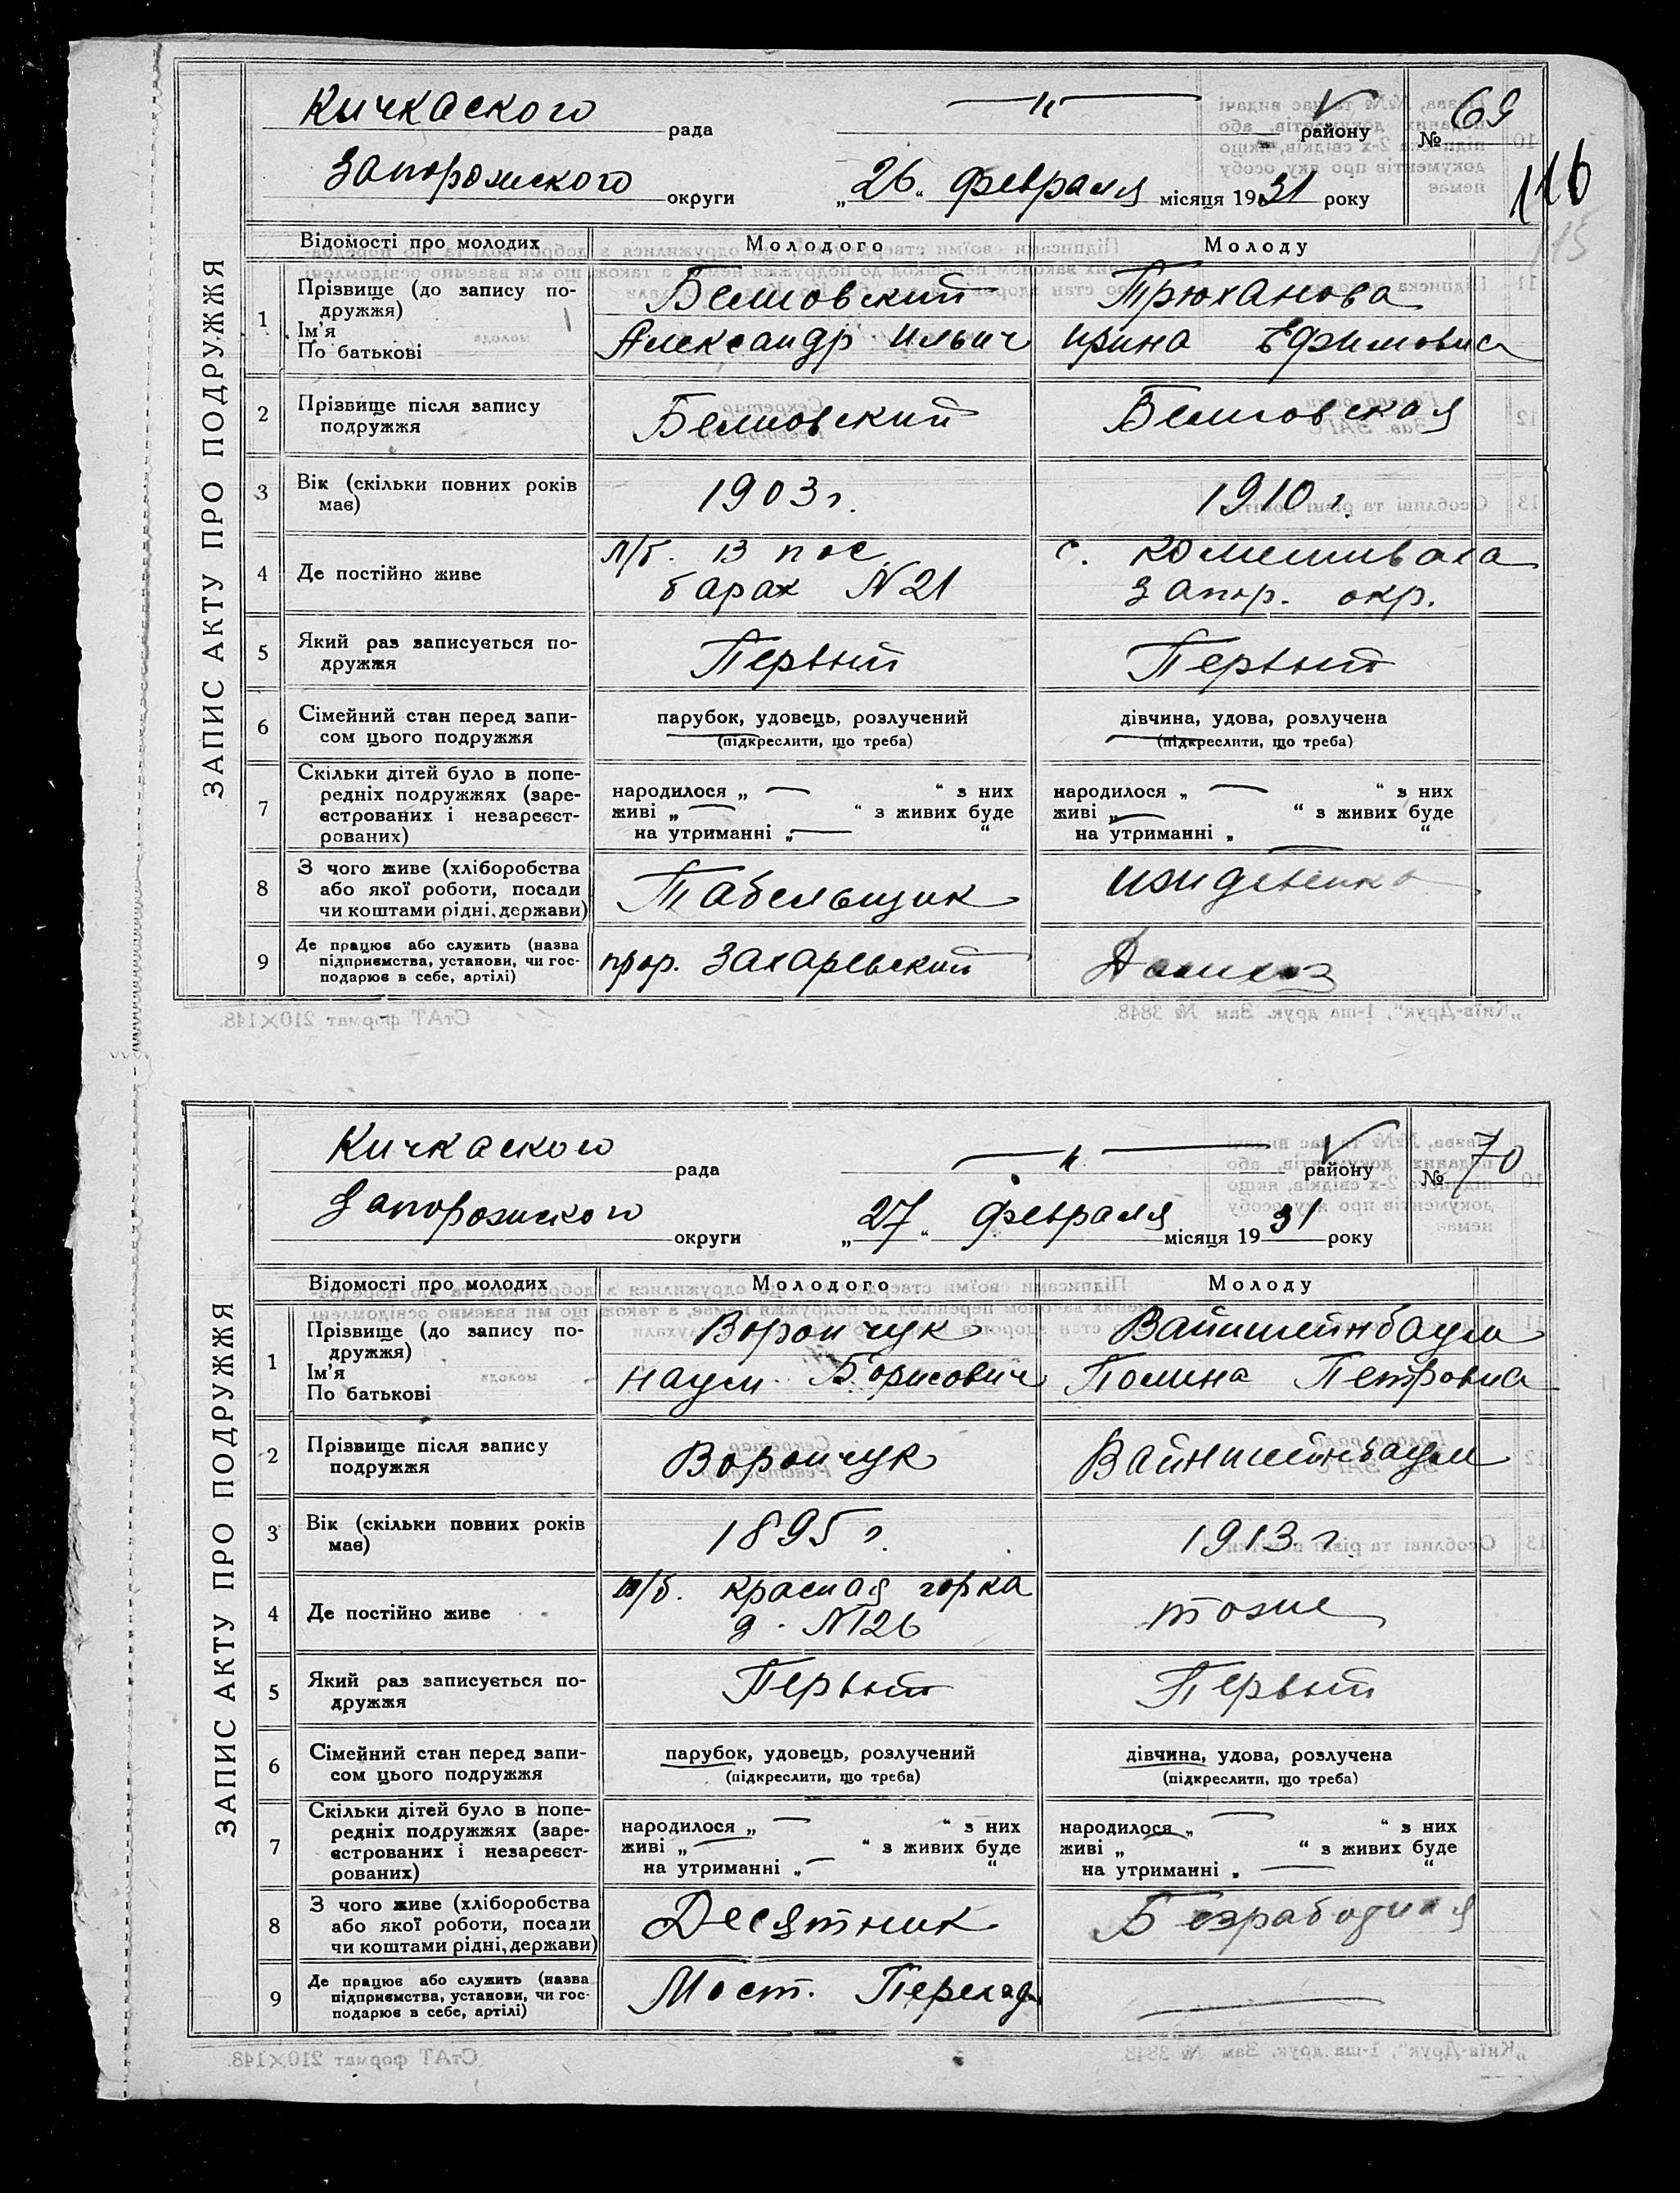 ЗАПИС АКТУ ПРО ПОДРУЖЖЯ
Кичкаского рада району № 69
116
15
Запорожского округи „26“ февраля місяця 1931 року
Відомості про молодих Молодого Молоду
1 Прізвище (до запису подружжя) Трюханова
Ім'я
По батькові Александр Ильич Ирина Ефимовна
2 Прізвище після запису
подружжя
3 Вік (скільки повних років
має) 1903 г. 1910 г.
4 Де постійно живе п/б. 13 пос. с.
барак N 21 Запор. окр.
5 Який раз записується по-
дружжя Первый Первый
6 Сімейний стан перед запи- парубок, удовець, розлучений дівчина, удова, розлучена
сом цього подружжя (підкреслити, що треба) (підкреслити, що треба)
7 Скільки дітей було в попе-
редніх подружжях (заре- народилося „ — “ з них народилося „ — “ з них
єстрованих і незареєст- живі „ — “ з живих буде живі „ — “ з живих буде
рованих) на утриманні „ — “ на утриманні „ — “
8 З чого живе (хліборобства
або якої роботи, посади Табельщик иждевенка
чи коштами рідні, держави)
9 Де працює або служить (назва
підприємства, установи, чи гос- прор. Захаревский
подарює в себе, артілі)
СтАТ формат 210×148. „Київ-Друк“, 1-ша друк. Зам № 3848.
ЗАПИС АКТУ ПРО ПОДРУЖЖЯ
Кичкаского рада району № 70
Запорожского округи „27“ февраля місяця 1931 року
Відомості про молодих Молодого Молоду
1 Прізвище (до запису по- Ворончук Вайншейнбаум
дружжя)
Ім'я Наум Борисович Полина Петровна
По батькові
2 Прізвище після запису Ворончук Вайншейнбаум
подружжя
3 Вік (скільки повних років 1895 г. 1913 г.
має)
4 Де постійно живе п/б. красная горка тоже
д. N 126
5 Який раз записується по- Первый Первый
дружжя
6 Сімейний стан перед запи- парубок, удовець, розлучений дівчина, удова, розлучена
сом цього подружжя (підкреслити, що треба) (підкреслити, що треба)
7 Скільки дітей було в попе-
редніх подружжях (заре- народилося „ — “ з них народилося „ — “ з них
єстрованих і незареєст- живі „ — “ з живих буде живі „ — “ з живих буде
рованих) на утриманні „ — “ на утриманні „ — “
8 З чого живе (хліборобства
або якої роботи, посади Десятник Безработная
чи коштами рідні, держави)
9 Де працює або служить (назва
підприємства, установи, чи гос- Мост. Переход —
подарює в себе, артілі)
СтАТ формат 210×148. „Київ-Друк“, 1-ша друк. Зам № 3848.